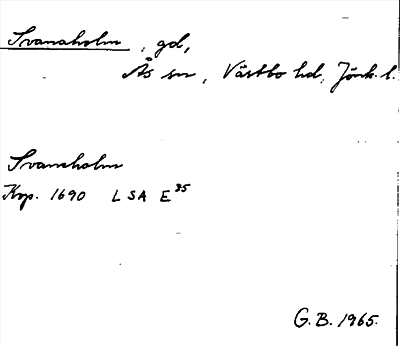 Svanaholm, gd,
Ås sn, Västbo hd, Jönk. l.
Svaneholm
Kop. 1690 LSA E³⁵
G.B. 1965.